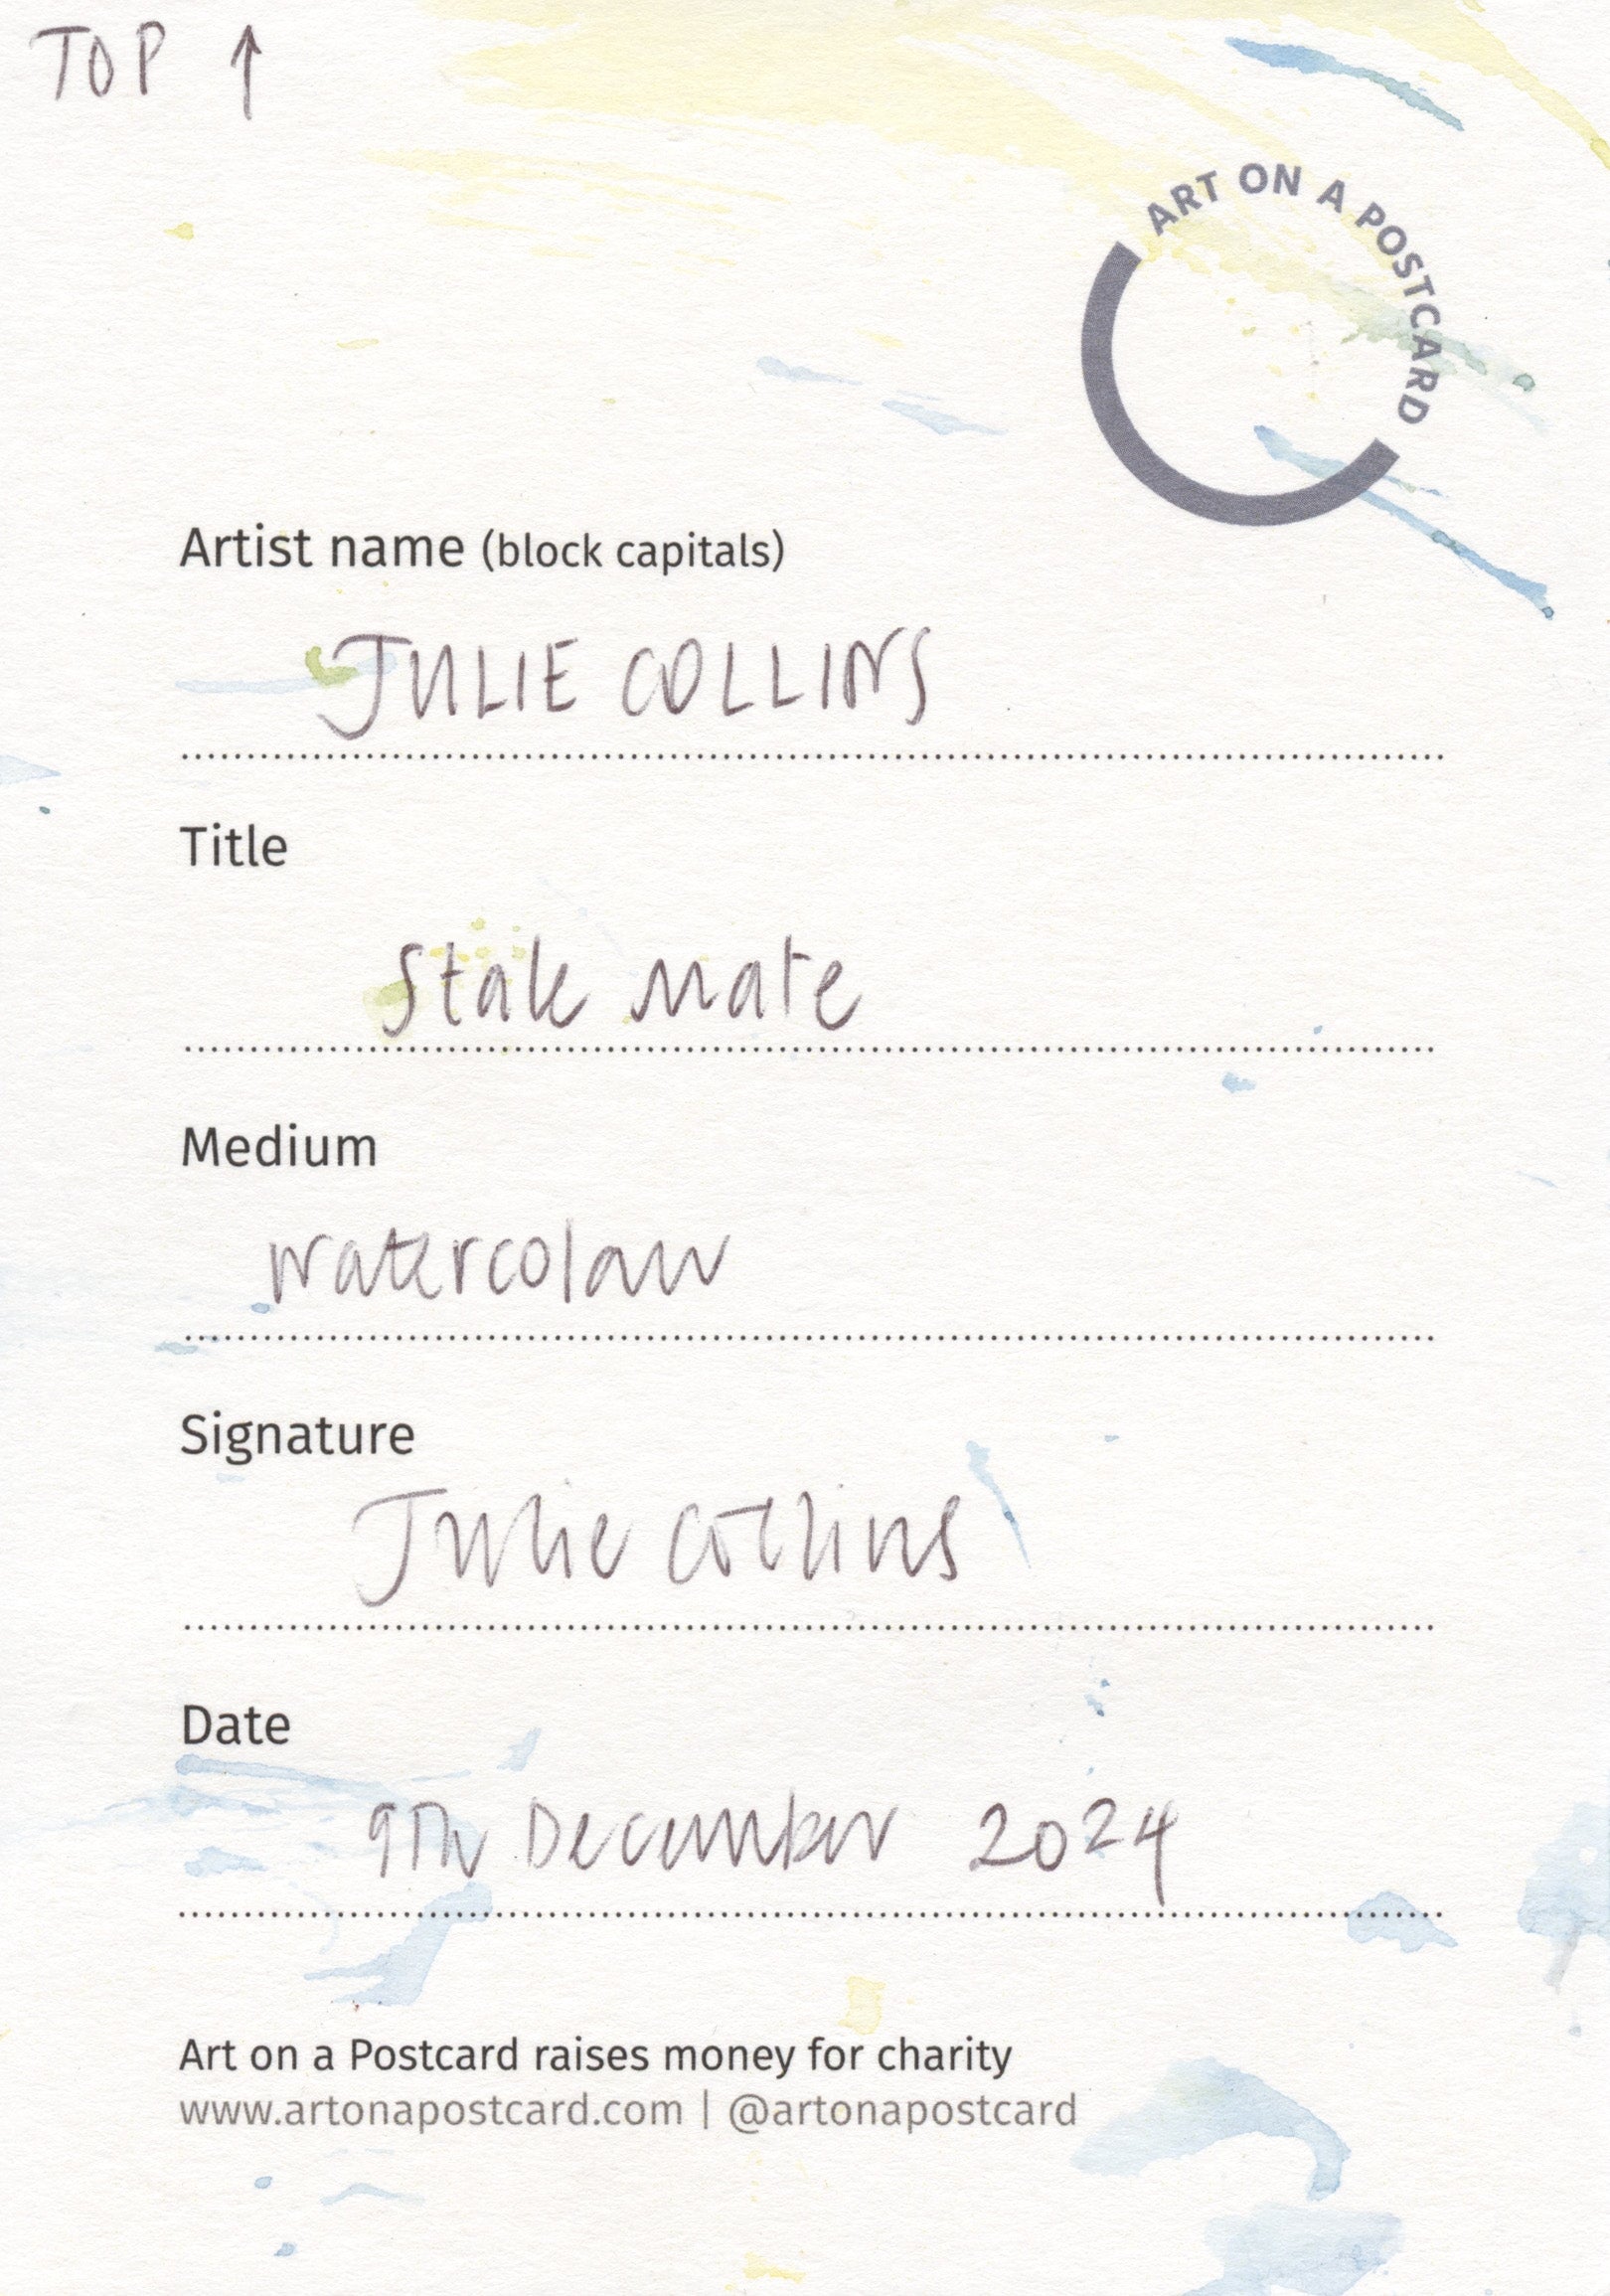 TOP ↑
ART ON A POSTCARD
Artist name (block capitals)
JULIE COLLINS
Title
Stale Mate
Medium
Watercolour
Signature
Julie Collins
Date
9Th December 2024
Art on a Postcard raises money for charity
www.artonapostcard.com | @artonapostcard